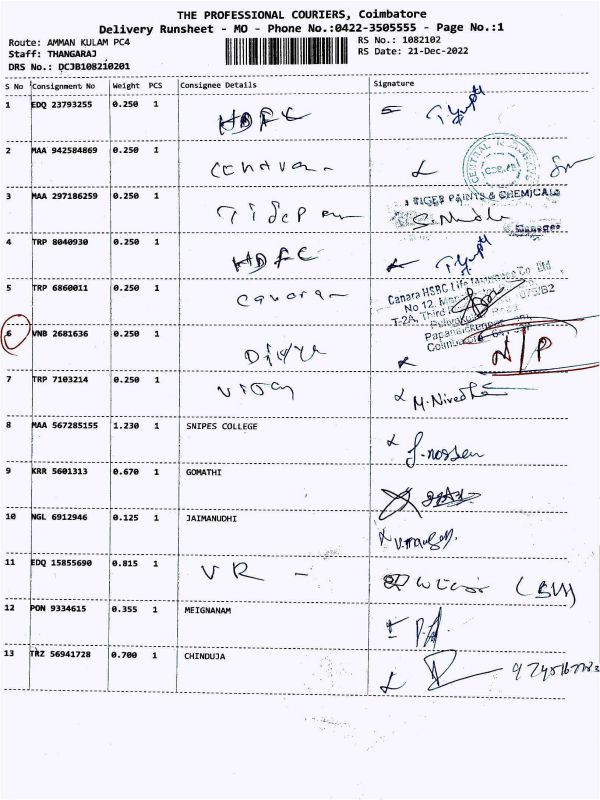 THE PROFESSIONAL COURIERS, Coimbatore
Delivery Runsheet - MO - Phone No.:0422-3505555 - Page No.:1
Route: AMMAN KULAM PC4 RS No.: 1082102
Staff: THANGARAJ RS Date: 21-Dec-2022
DRS No.: DCJB108210201
S No Consignment No Weight PCS Consignee Details Signature
1 EDQ 23793255 0.250 1 HDFC
2 MAA 942584869 0.250 1
CENTRAL
3 MAA 297186259 0.250 1
TIGER PAINTS & CHEMICALS
Manager
4 TRP 8040930 0.250 1 HDFC
5 TRP 6860011 0.250 1 Canara
Canara HSBC Life Insurance Co. Ltd
No 12,
T-2A, Third
Coimbatore
6 VNB 2681636 0.250 1 Divya N/P
7 TRP 7103214 0.250 1 Vijay M.Nivedha
8 MAA 567285155 1.230 1 SNIPES COLLEGE
9 KRR 5601313 0.670 1 GOMATHI
10 NGL 6912946 0.125 1 JAIMANUDHI
11 EDQ 15855690 0.815 1 VR -
12 PON 9334615 0.355 1 MEIGNANAM
13 TRZ 56941728 0.700 1 CHINDUJA